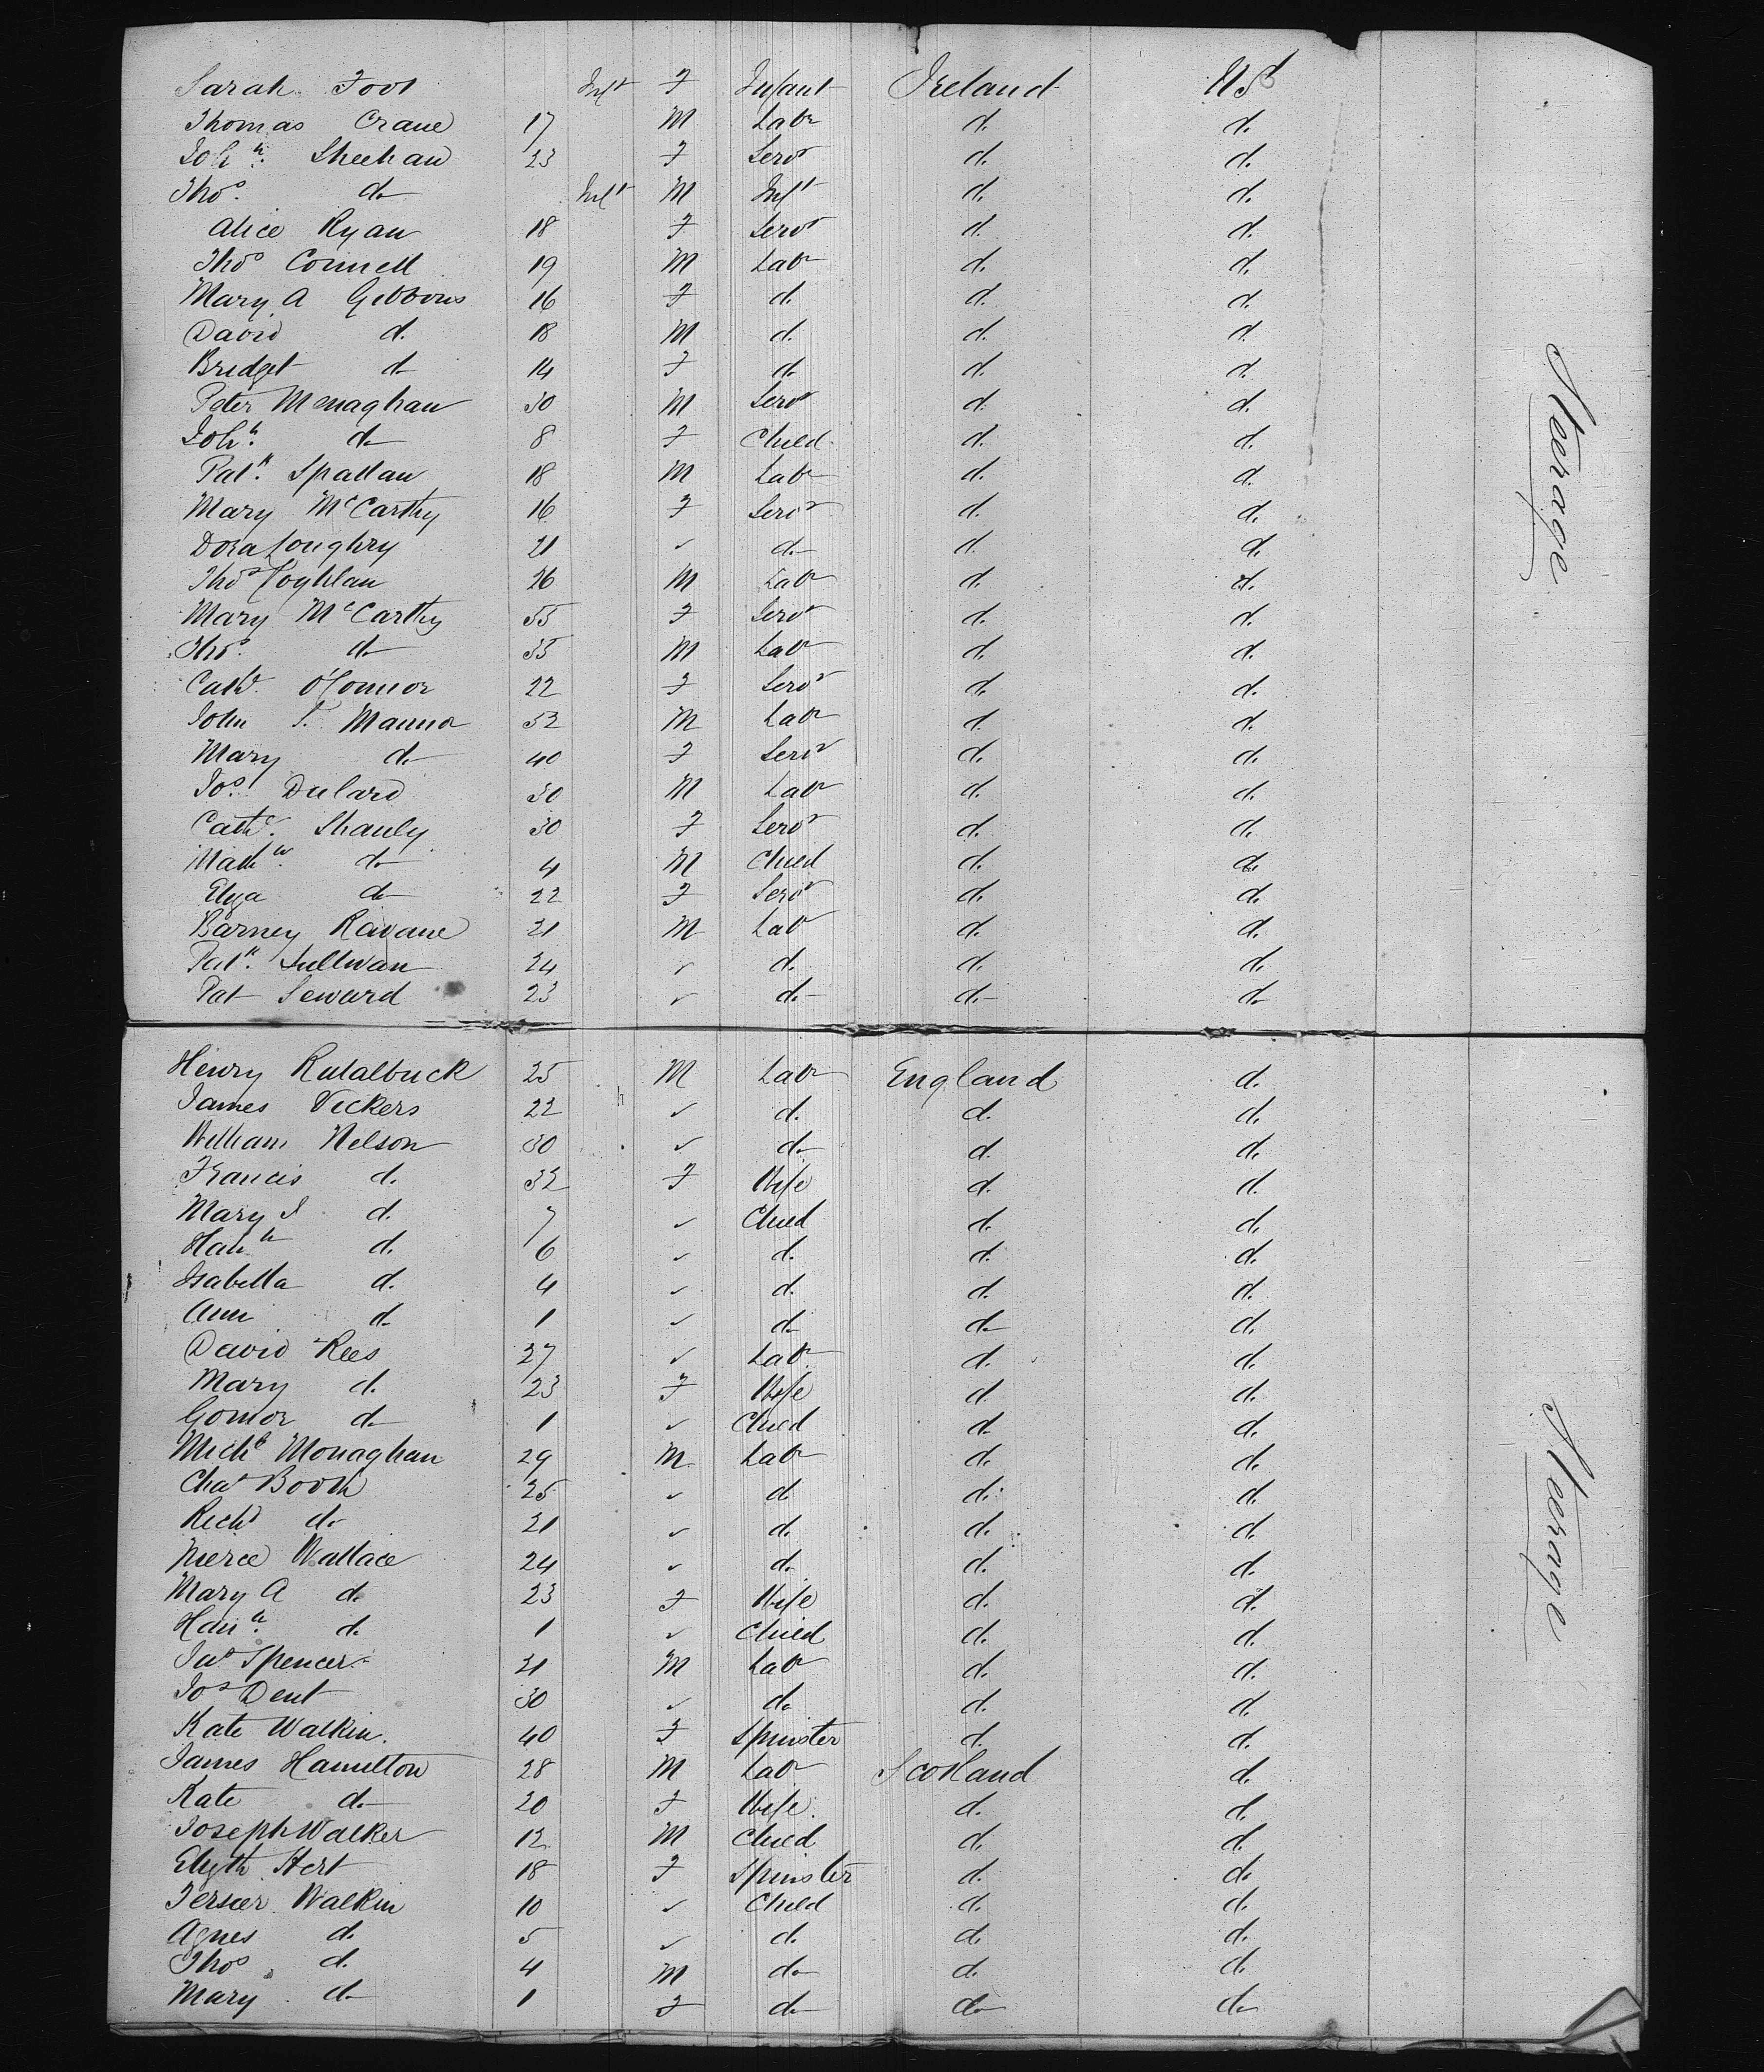 Sarah Foot Inft F Infant Ireland US
Thomas Crane 17 M Labr d. d.
Johh. Sheehan 23 F Servt d. d.
Thos. do Inft M Inft d. d.
Alice Ryan 18 F Servt d. d.
Thos Connell 19 M Labr d. d.
Mary A Gibbons 16 F d. d. d.
David d. 18 M d. d. d.
Bridget d 14 F d. d. d.
Peter Monaghan 30 M Servt d. d.
Johh. do 8 F Child d. d.
Patk. Spallan 18 M Labr d. d.
Mary McCarthy 16 F Servt d. d.
Dora Loughry 21 ✓ d. d. d.
Thos Coghlan 26 M Labr d. d.
Mary McCarthy 55 F Servt d. d.
Thos. do 35 M Labr d. d.
Cathe. O'Connor 22 F Servt d. d.
John T. Manna 52 M Labr d. d.
Mary do 40 F Servt d. d.
Jos. Dulard 30 M Labr d. d.
Cathe. Shanly 30 F Servt d. d.
Mathw. do 4 M Child d. d.
Elza do 22 F Servt d. d.
Barney Ravane 21 M Labr d. d.
Patk. Sullivan 24 ✓ d. d. d.
Pat Seward 23 ✓ d. d. d.
Steerage
Henry Rutalbuck 25 M Labr England d.
James Vickers 22 ✓ d. d. d.
William Nelson 30 ✓ d. d. d.
Francis d. 32 F Wife d. d.
Mary J d. 7 ✓ Child d. d.
Hanh d. 6 ✓ d. d. d.
Isabella d. 4 ✓ d. d. d.
Ann d. 1 ✓ d. d. d.
David Rees 27 ✓ Labr d. d.
Mary d. 23 F Wife d. d.
Gomor do 1 ✓ Child d. d.
Michl Monaghan 29 M Labr d. d.
Chas Booth 25 ✓ d d. d.
Richd do 21 ✓ d. d. d.
Pierce Wallace 24 ✓ d. d. d.
Mary A d. 23 F Wife d. d.
Hanh. d. 1 ✓ Child d. d.
Jno Spencer 21 M Labr d. d.
Jos Dent 30 ✓ do d. d.
Kate Walkin. 40 F Spinster d. d.
James Hamilton 28 M Labr Scotland d.
Kate do 20 F Wife. d. d.
Joseph Walker 12 M Child d. d.
Elyth Hert 18 F Spinster d. do
Walkin 10 ✓ Child d. d.
Agnes d. 5 ✓ d. d. d.
Thos d. 4 M do d. d.
Mary do 1 F do do do
Steerage